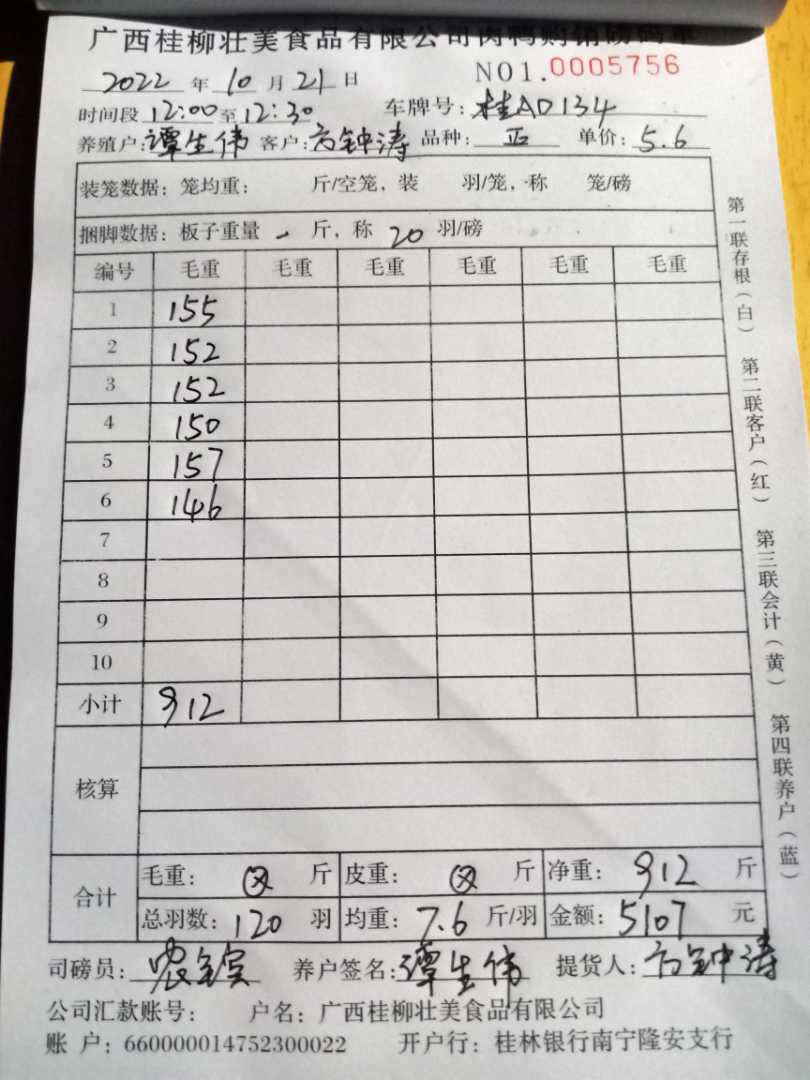 广西桂柳壮美食品有限公司肉鸭购销磅码单
NO1.0005756
2022 年 10 月 21 日
时间段 12:00 至 12:30 车牌号: 桂AD134
养殖户: 谭生伟 客户: 方钟涛 品种: 正 单价: 5.6
装笼数据: 笼均重: 斤/空笼, 装 羽/笼, 称 笼/磅
捆脚数据: 板子重量 - 斤, 称 20 羽/磅
编号 毛重 毛重 毛重 毛重 毛重
1 155
2 152
3 152
4 150
5 157
6 146
7
8
9
10
小计 912
核算
合计 毛重: 斤 皮重: 斤 净重: 912 斤
总羽数: 120 羽 均重: 7.6 斤/羽 金额: 5107 元
司磅员: 农 养户签名: 谭生伟 提货人: 方钟涛
公司汇款账号: 户名: 广西桂柳壮美食品有限公司
账 户: 660000014752300022 开户行: 桂林银行南宁隆安支行
第一联存根(白)
第二联客户(红)
第三联会计(黄)
第四联养户(蓝)